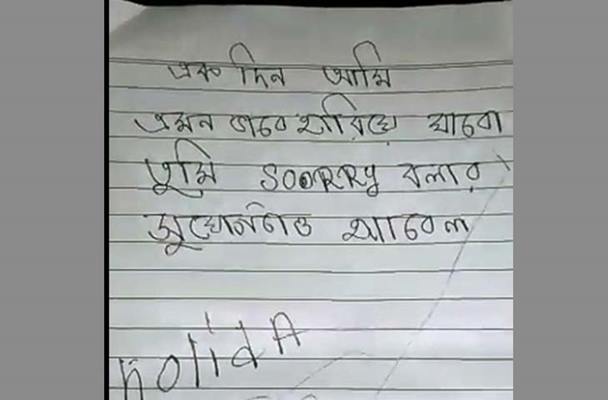 এক দিন আমি
এমন ভাবে হারিয়ে যাবো
তুমি SOORRy বলার
সুযোগটাও পাবেনা
nolidA